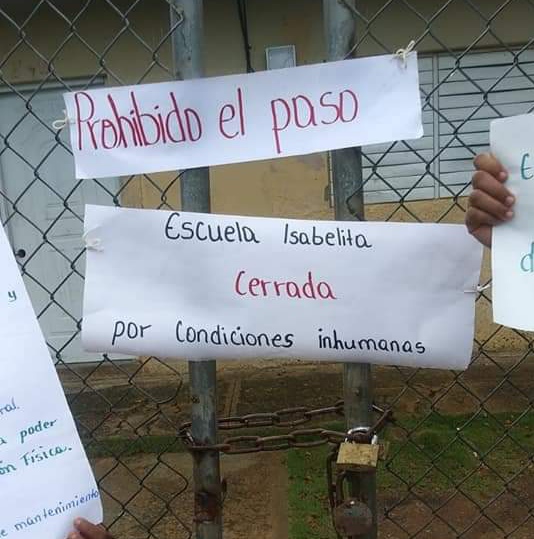 Prohibido el paso
Escuela Isabelita
Cerrada
por Condiciones inhumanas
y
ral.
a poder
ón Física.
e mantenimiento
E
d